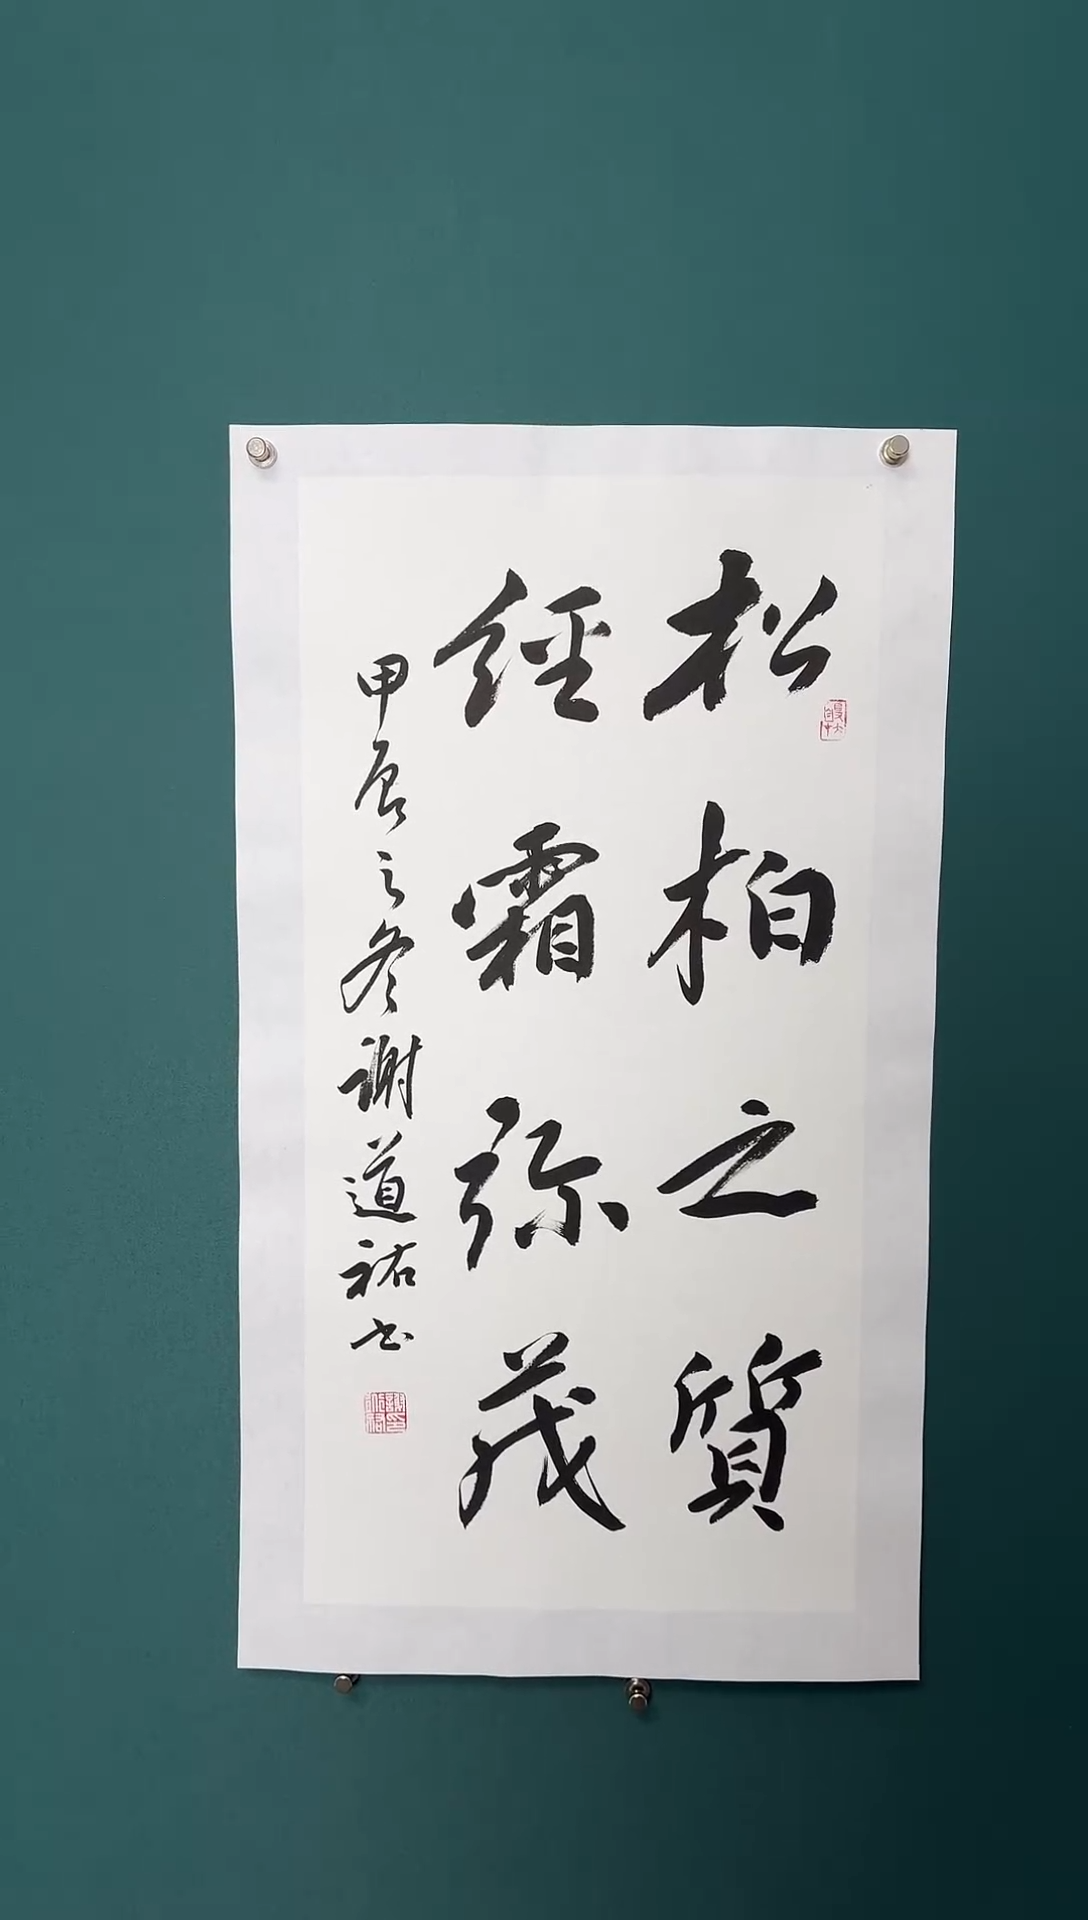 松柏之質
經霜弥茂
甲辰之冬谢道祐书